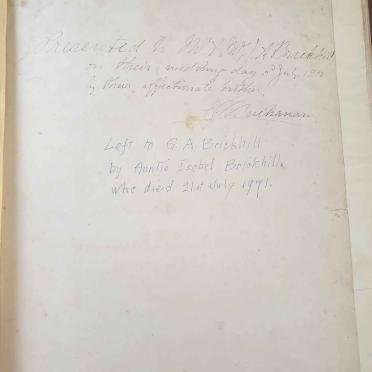 Presented to Mr & Mrs J. A. Brickhill
on their wedding day 5th July,
by their affectionate brother,
Buchanan
Left to G. A. Brickhill
by Auntie Isobel Brickhill.
who died 21st July 1991.